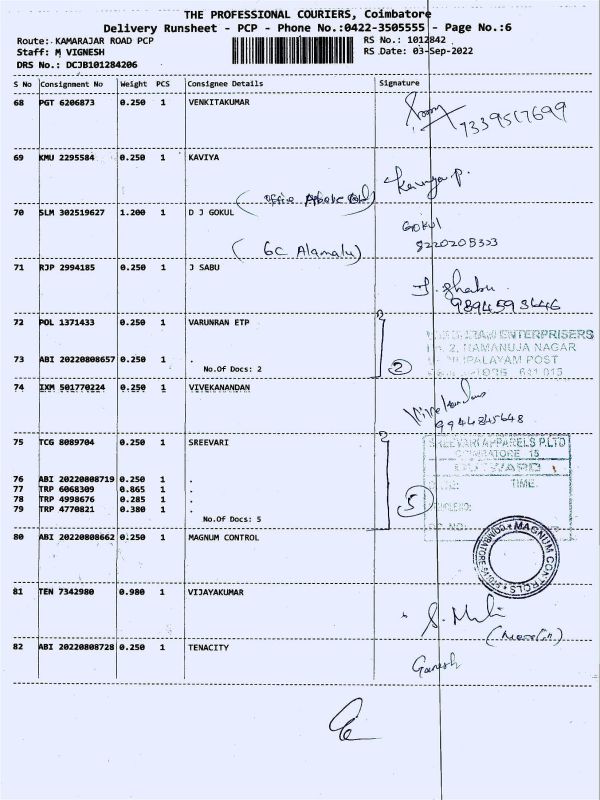 THE PROFESSIONAL COURIERS, Coimbatore
Delivery Runsheet - PCP - Phone No.:0422-3505555 - Page No.:6
Route: KAMARAJAR ROAD PCP RS No.: 1012842
Staff: M VIGNESH RS Date: 03-Sep-2022
DRS No.: DCJB101284206
S No Consignment No Weight PCS Consignee Details Signature
68 PGT 6206873 0.250 1 VENKITAKUMAR
7339517699
69 KMU 2295584 0.250 1 KAVIYA
Kaviya P.
70 SLM 302519627 1.200 1 D J GOKUL
Gokul
8220205333
(GC Alamalu)
71 RJP 2994185 0.250 1 J SABU
J. Shabu
9894593446
72 POL 1371433 0.250 1 VARUNRAN ETP
ENTERPRISERS
2, RAMANUJA NAGAR
PALAYAM POST
641 015
73 ABI 20220808657 0.250 1 .
No.Of Docs: 2
2
74 IXM 501770224 0.250 1 VIVEKANANDAN
9944845648
75 TCG 8089704 0.250 1 SREEVARI
SREEVARI APPARELS P.LTD
COIMBATORE 15
TIME
76 ABI 20220808719 0.250 1 .
77 TRP 6068309 0.865 1 .
78 TRP 4998676 0.285 1 .
79 TRP 4770821 0.380 1 .
No.Of Docs: 5
5
80 ABI 20220808662 0.250 1 MAGNUM CONTROL
MAGNUM CONTROLS
COIMBATORE
81 TEN 7342980 0.980 1 VIJAYAKUMAR
82 ABI 20220808728 0.250 1 TENACITY
Ganesh